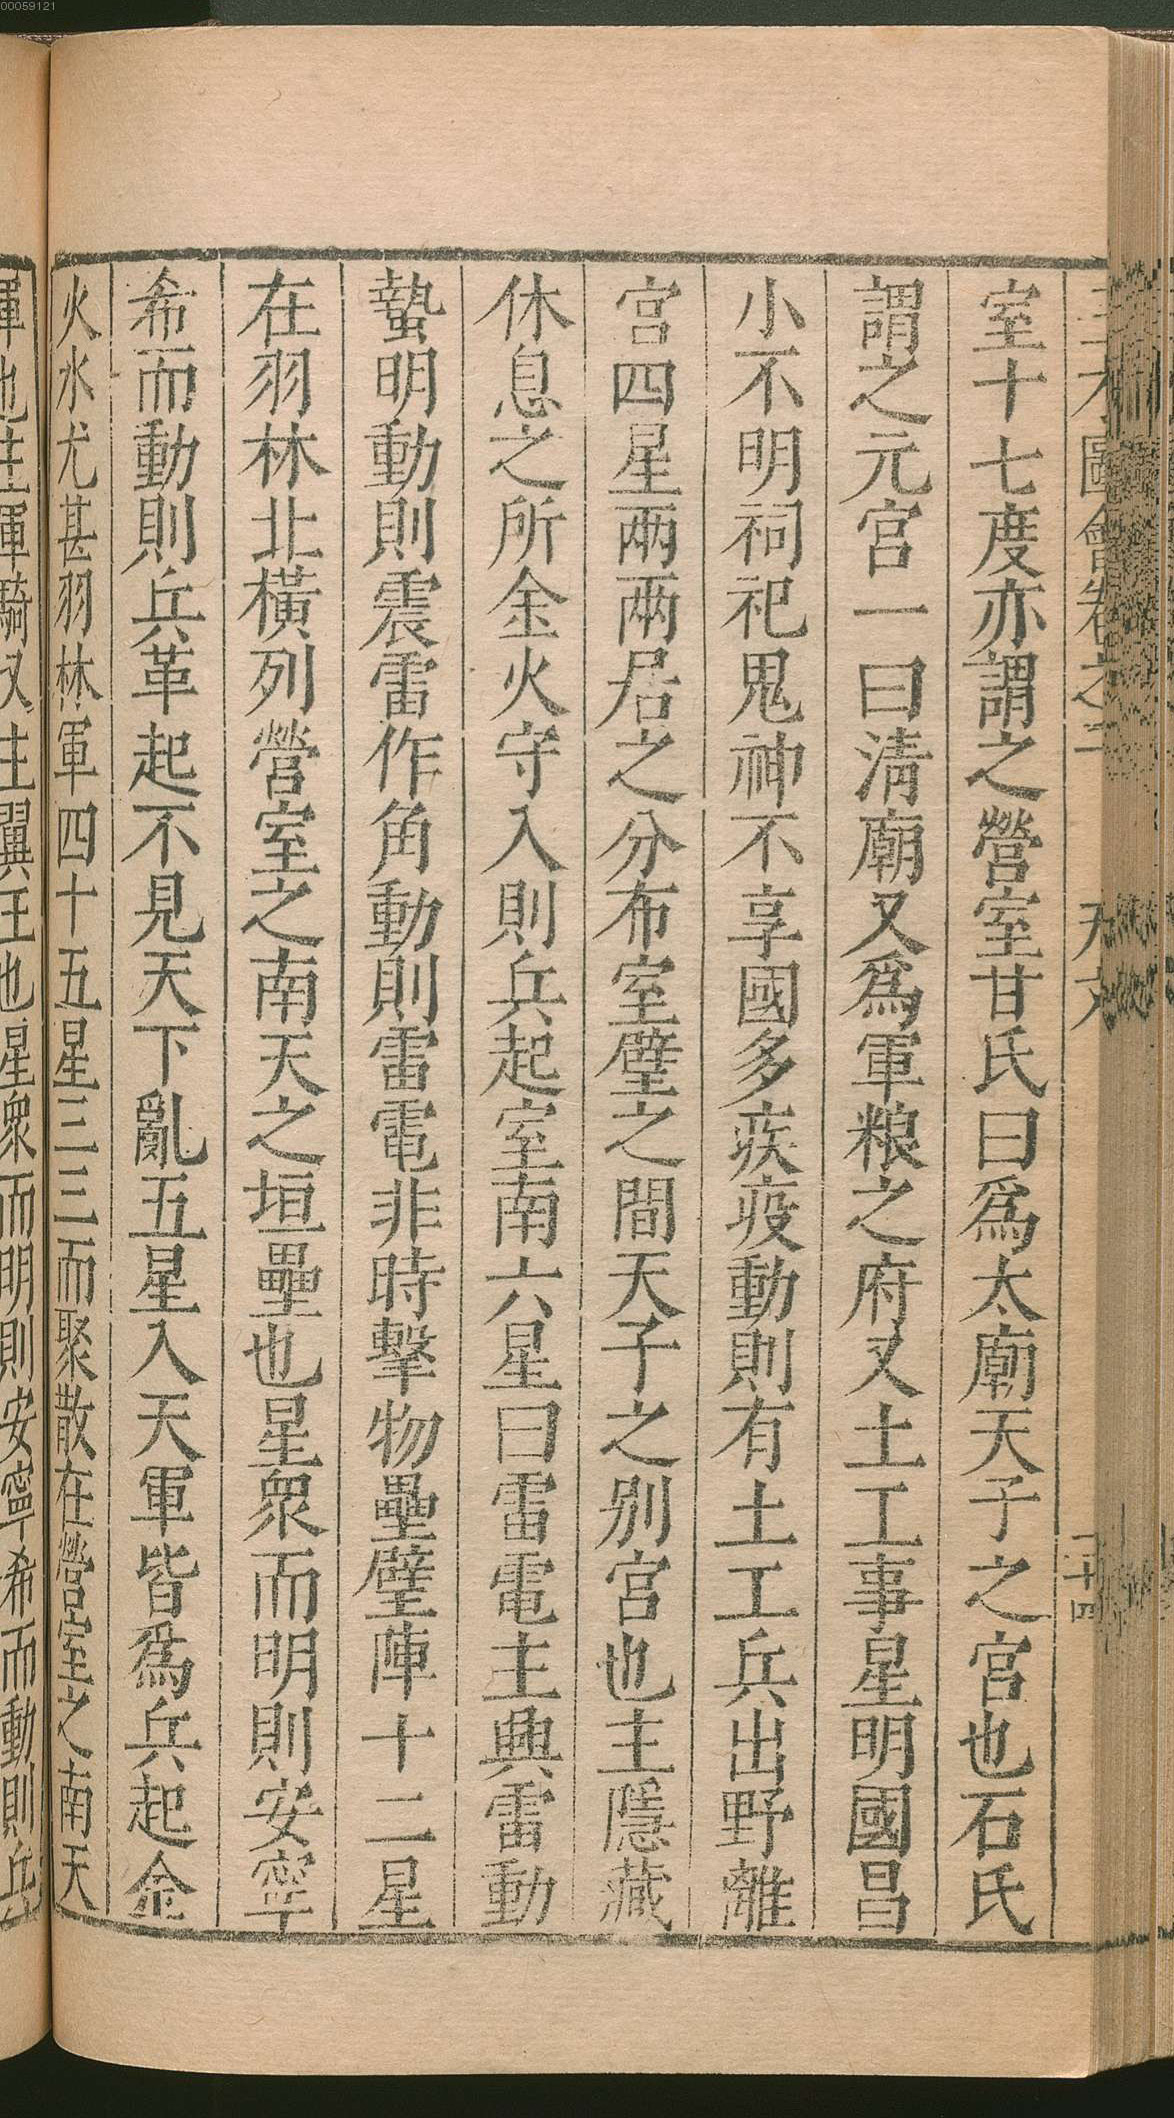 00059121
室十七度亦謂之營室甘氏曰爲太廟天子之宮也石氏
謂之元宮一曰清廟又爲軍粮之府又土工事星明國昌
小不明祠祀鬼神不享國多疾疫動則有土工兵出野離
宮四星兩兩居之分布室壁之間天子之别宮也主隱藏
休息之所金火守入則兵起室南六星曰雷電主興雷動
蟄明動則震雷作角動則雷電非時擊物壘壁陣十二星
在羽林北橫列營室之南天之垣壘也星衆而明則安寧
希而動則兵革起不見天下亂五星入天軍皆爲兵起金
火水尤甚羽林軍四十五星三三而聚散在營室之南天
軍也主軍騎又主翼王也星衆而明則安寧希而動則兵